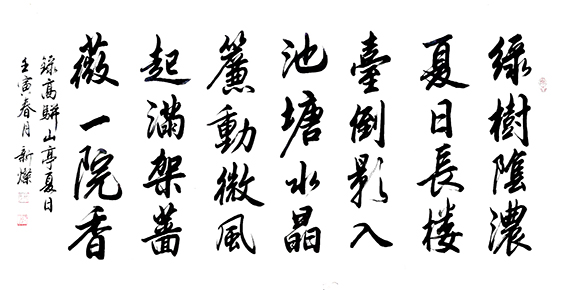 綠樹陰濃
夏日長樓
臺倒影入
池塘水晶
簾動微風
起滿架薔
薇一院香
錄高駢山亭夏日
壬寅春月新燦